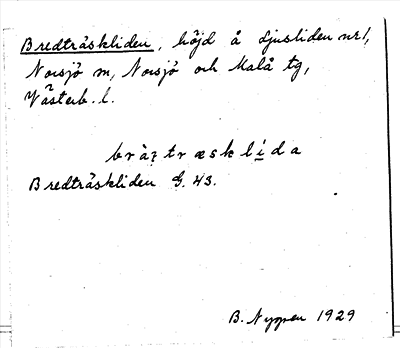 Bredträskliden, höjd å Ljusliden nr 1,
Norsjö sn, Norsjö och Malå tg,
Västerb. l.
brὰ:træsklída
Bredträskliden G. 43.
B. Nyman 1929